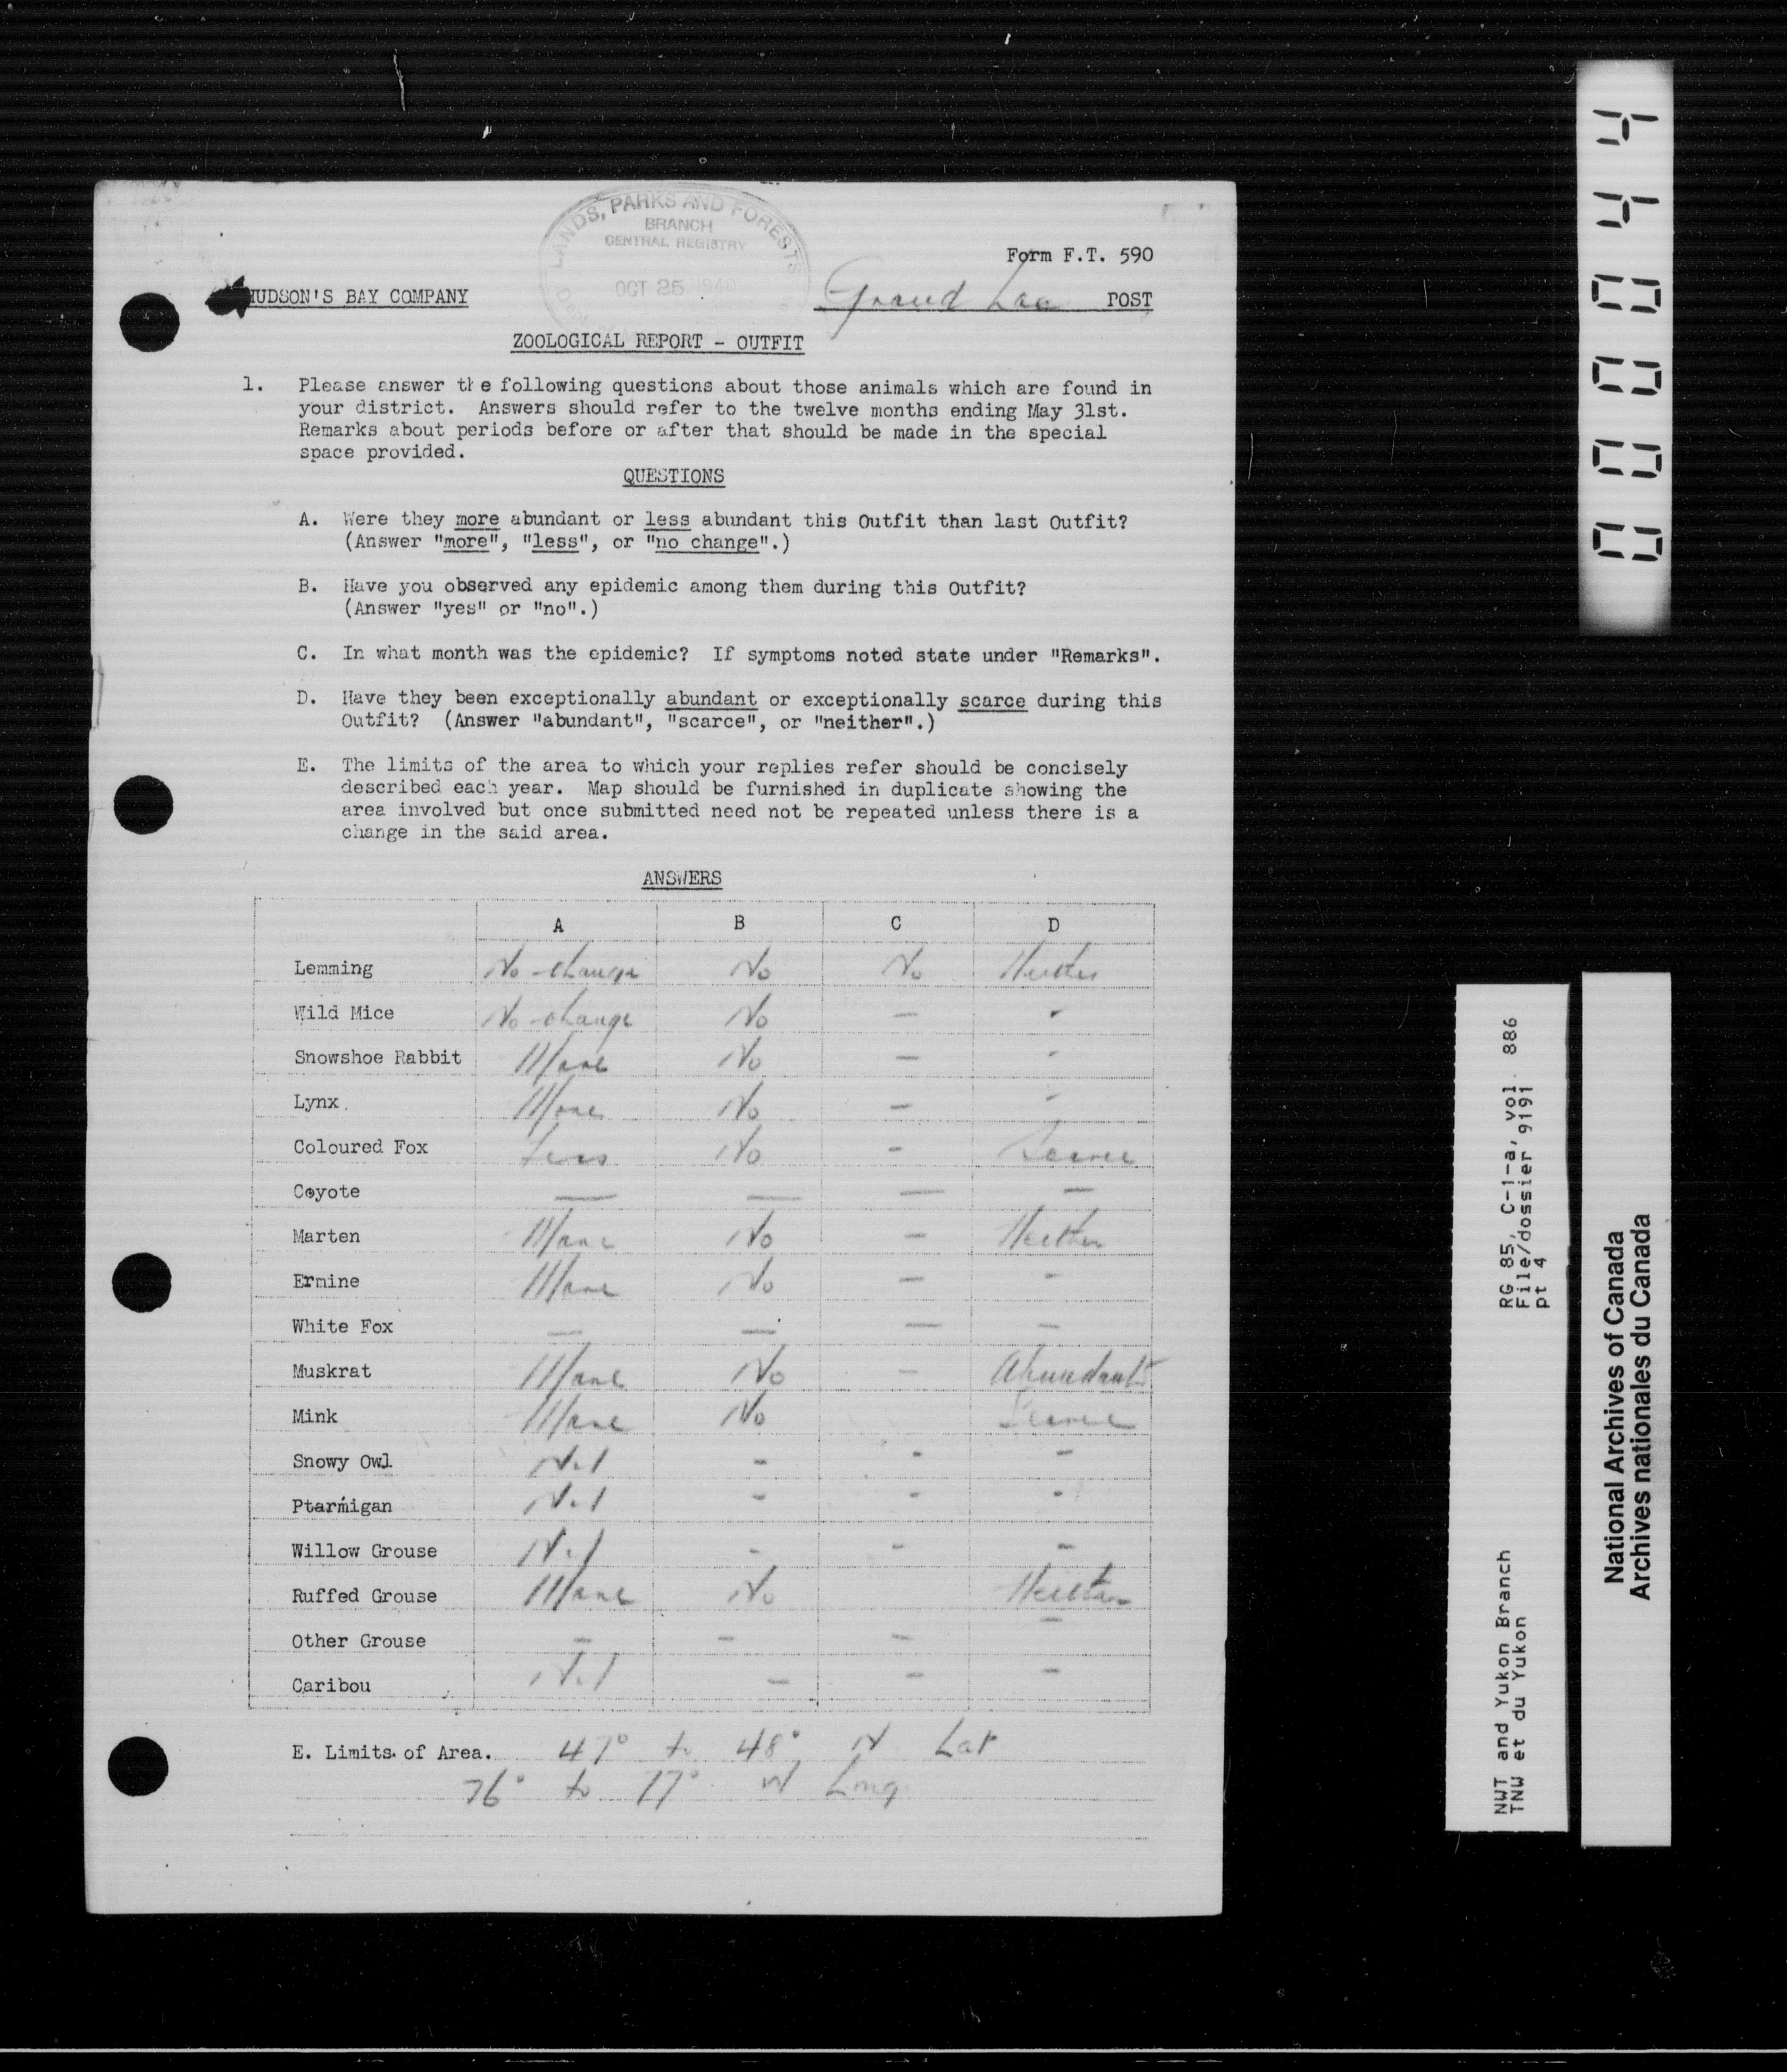 LANDS, PARKS AND FORESTS
BRANCH
CENTRAL REGISTRY
OCT 25 1940
Form F.T. 590
HUDSON'S BAY COMPANY Grand Lac POST
ZOOLOGICAL REPORT - OUTFIT
1. Please answer the following questions about those animals which are found in
your district. Answers should refer to the twelve months ending May 31st.
Remarks about periods before or after that should be made in the special
space provided.
QUESTIONS
A. Were they more abundant or less abundant this Outfit than last Outfit?
(Answer "more", "less", or "no change".)
B. Have you observed any epidemic among them during this Outfit?
(Answer "yes" or "no".)
C. In what month was the epidemic? If symptoms noted state under "Remarks".
D. Have they been exceptionally abundant or exceptionally scarce during this
Outfit? (Answer "abundant", "scarce", or "neither".)
E. The limits of the area to which your replies refer should be concisely
described each year. Map should be furnished in duplicate showing the
area involved but once submitted need not be repeated unless there is a
change in the said area.
ANSWERS
A B C D
Lemming No change No No Neither
Wild Mice No change No - "
Snowshoe Rabbit More No - "
Lynx More No - "
Coloured Fox Less No - Scarce
Coyote - - - -
Marten More No - Neither
Ermine More No - "
White Fox - - - -
Muskrat More No - Abundant
Mink More No Scarce
Snowy Owl Nil - - -
Ptarmigan Nil - - -
Willow Grouse Nil - - -
Ruffed Grouse More No Neither
Other Grouse - - - -
Caribou Nil - - -
E. Limits of Area. 47° to 48° N Lat
76° to 77° W Long
000044
RG 85, C-1-a, vol 886
File/dossier 9191
pt 4
NWT and Yukon Branch
TNW et du Yukon
National Archives of Canada
Archives nationales du Canada